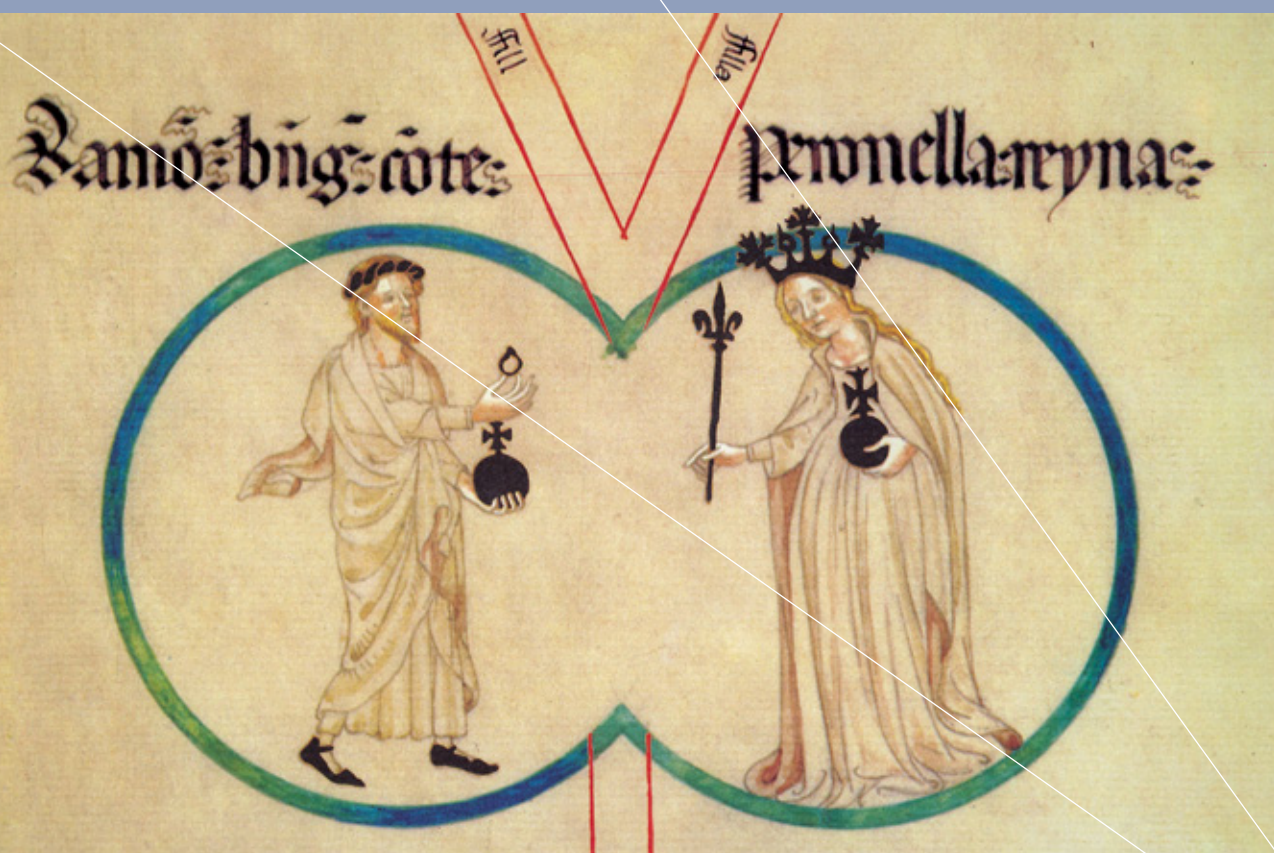 ffill
ffilla
Ramō: bn̄g: cōte:
peronella: reyna: